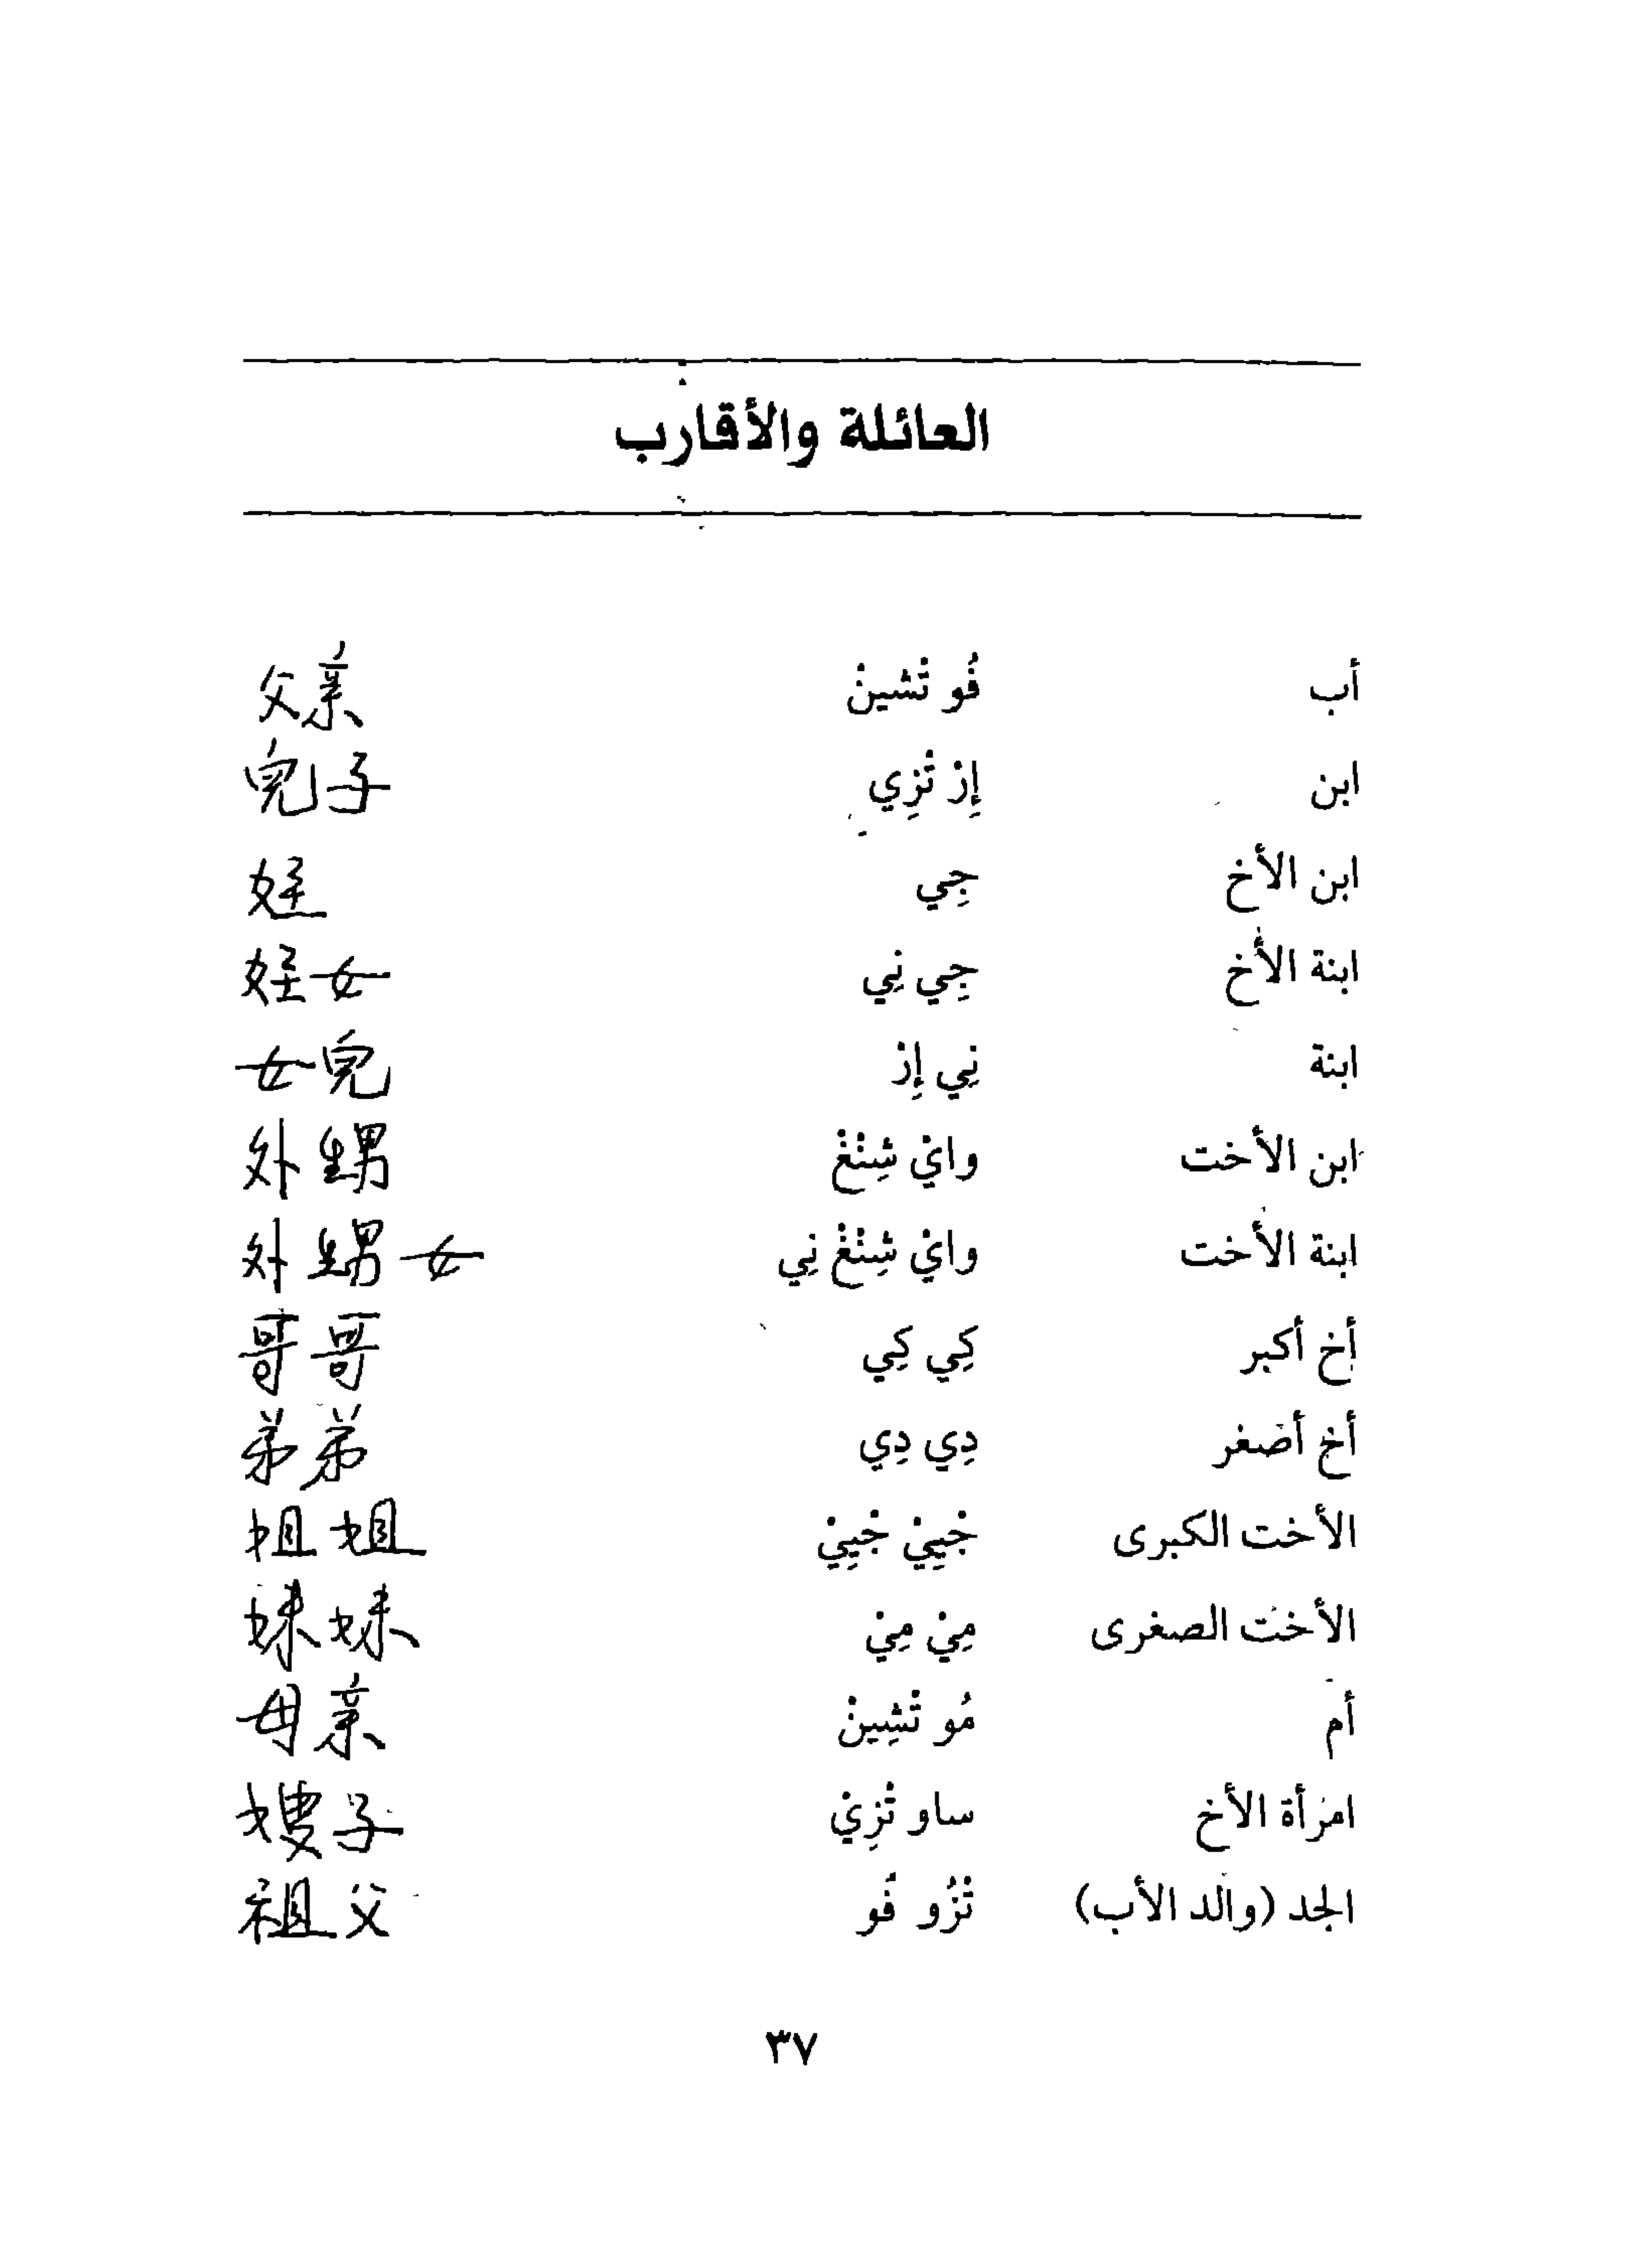 العائلة والأقارب
أب فُو تْشينْ 父亲
ابن إِرْ تْزِي 兒子
ابن الأخ جِي 姪
ابنة الأخ جِي نِي 姪女
ابنة نِي إِرْ 女兒
ابن الأخت وايْ شِنْغْ 外甥
ابنة الأخت وايْ شِنْغْ نِي 外甥女
أخ أكبر كِي كِي 哥哥
أخ أصغر دِي دِي 弟弟
الأخت الكبرى جْيِيْ جْيِيْ 姐姐
الأخت الصغرى مِيْ مِيْ 妹妹
أم مُو تْشِينْ 母亲
امرأة الأخ ساو تْزِيْ 嫂子
الجد (والد الأب) تْزُو فُو 祖父
٣٧